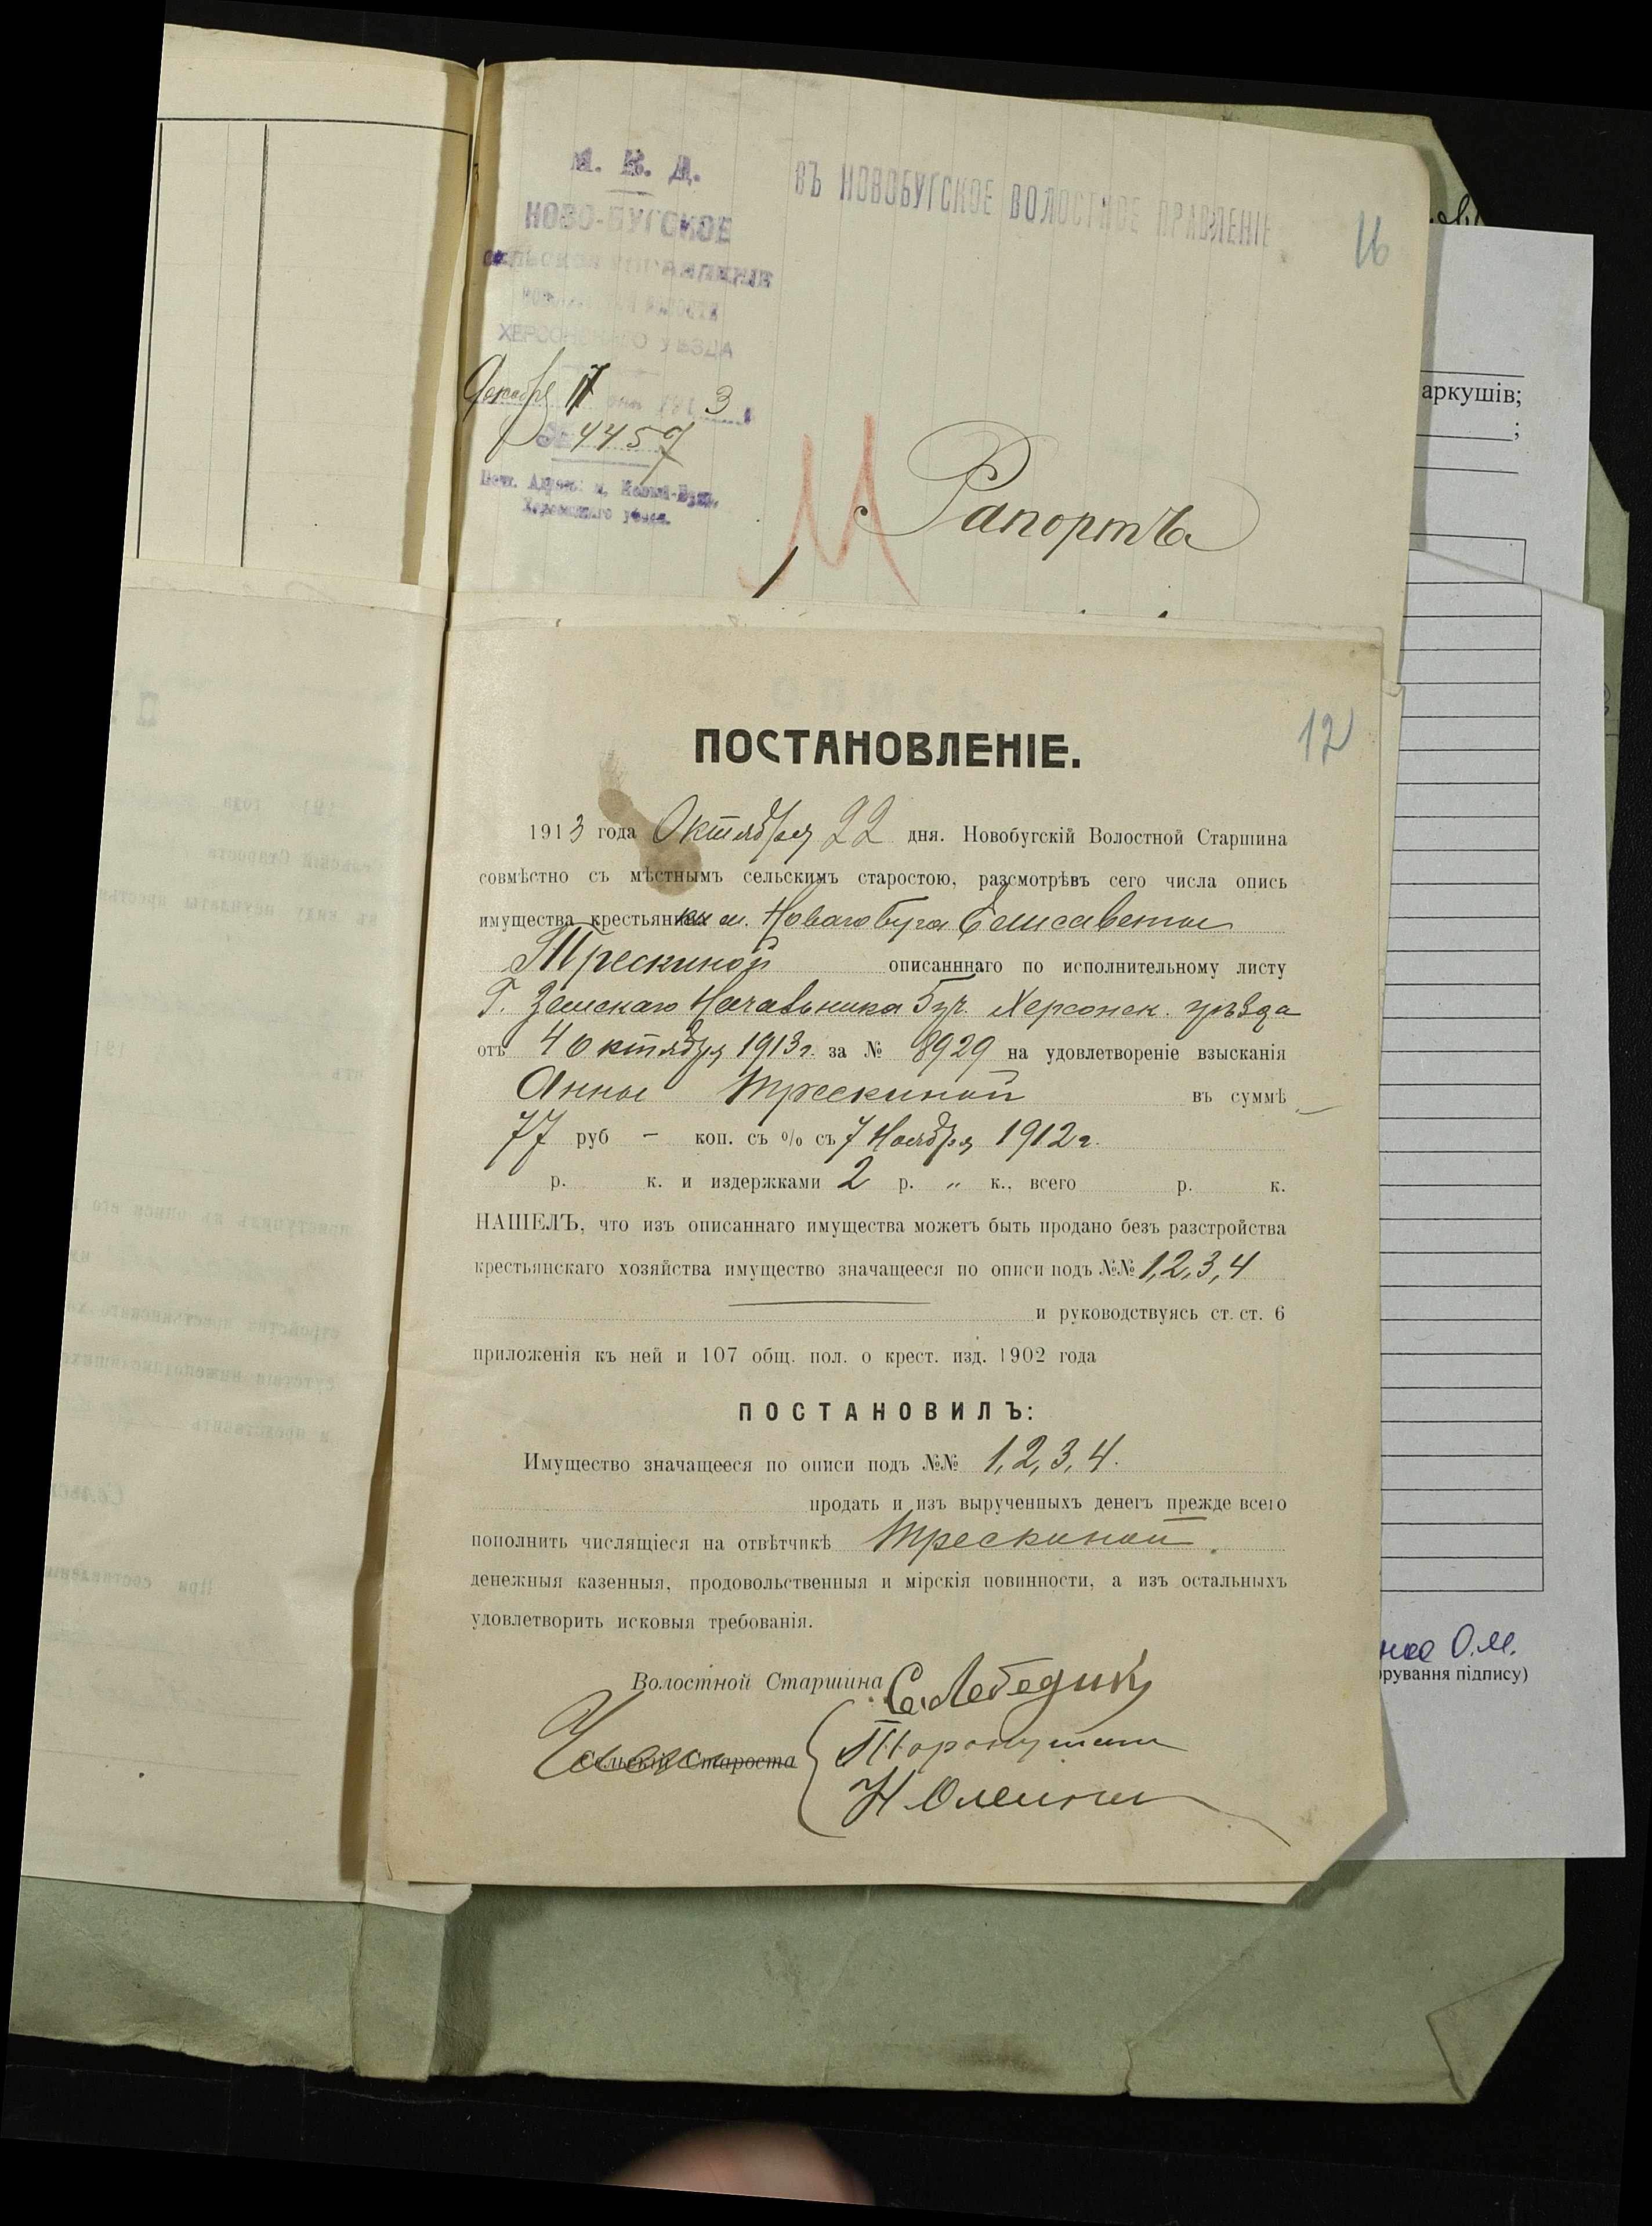 М. В. Д.
НОВО-БУГСКОЕ
СЕЛЬСКОЕ УПРАВЛЕНІЕ
ВОЛОСТИ
ХЕРСОНСКАГО УѢЗДА
Декабря 17 дня 1913 г.
За 4457
Почт. Адресъ: м. Новый-Бугъ,
Херсонскаго уѣзда.
ВЪ НОВОБУГСКОЕ ВОЛОСТНОЕ ПРАВЛЕНІЕ
16
М
Рапортъ
12
ПОСТАНОВЛЕНІЕ.
1913 года Октября 22 дня. Новобугскій Волостной Старшина
совмѣстно съ мѣстнымъ сельскимъ старостою, разсмотрѣвъ сего числа опись
имущества крестьянки м. Новаго Буга Елисаветы
Трескиной описанннаго по исполнительному листу
Г. Земскаго Начальника 5 уч. Херсонск. уѣзда
отъ 4 октября 1913 г. за № 8929 на удовлетвореніе взысканія
Анны Трескиной въ суммѣ
77 руб — коп. съ % съ 7 Ноября 1912 г.
р. к. и издержками 2 р. „ к., всего р. к.
НАШЕЛЪ, что изъ описаннаго имущества можетъ быть продано безъ разстройства
крестьянскаго хозяйства имущество значащееся по описи подъ №№ 1, 2, 3, 4
и руководствуясь ст. ст. 6
приложенія къ ней и 107 общ. пол. о крест. изд. 1902 года
ПОСТАНОВИЛЪ:
Имущество значащееся по описи подъ №№ 1, 2, 3, 4.
продать и изъ вырученныхъ денегъ прежде всего
пополнить числящіеся на отвѣтчикѣ Трескиной
денежныя казенныя, продовольственныя и мірскія повинности, а изъ остальныхъ
удовлетворить исковыя требованія.
Волостной Старшина С. Лебедикъ
Сельскій Староста
аркушів;
;
О.М.
рування підпису)